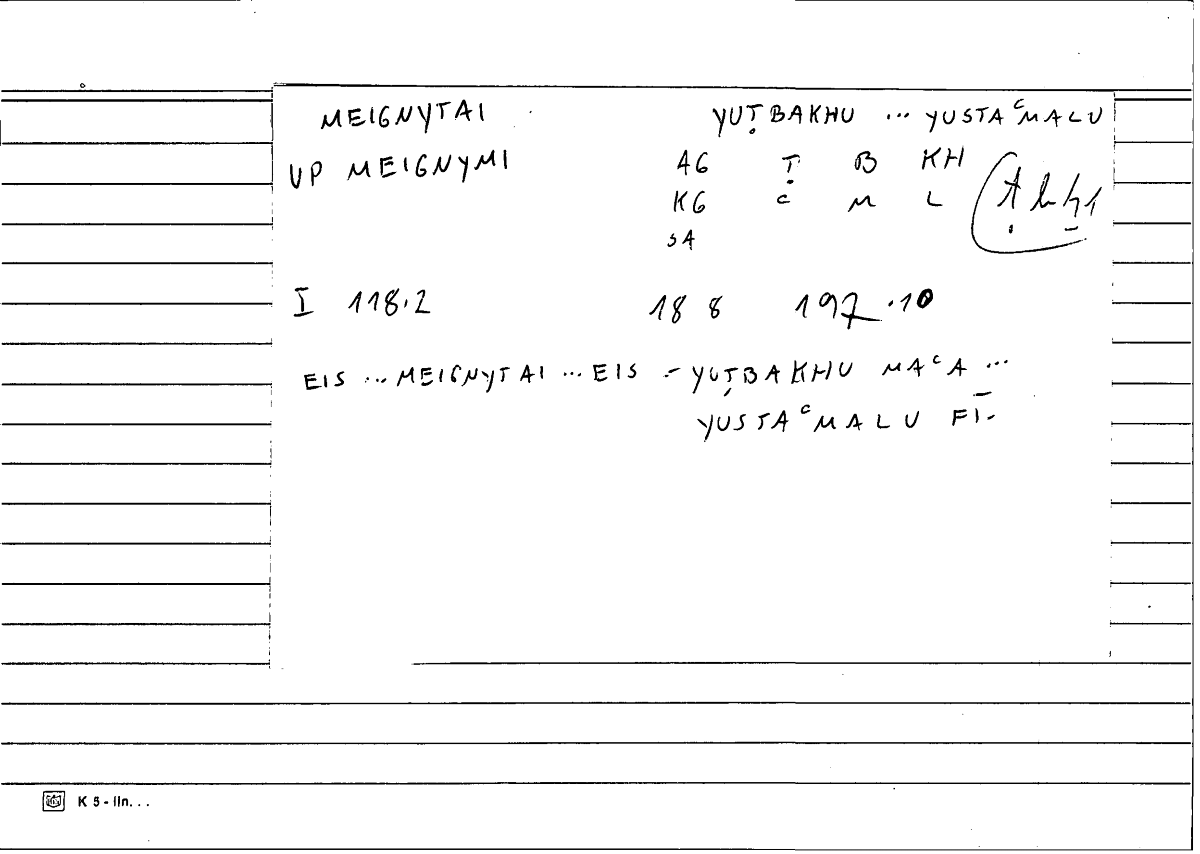 MEIGNYTAI YUṬBAKHU ... YUSTAᶜMALU
VP MEIGNYMI AG Ṭ B KH
KG ᶜ M L
SA
I 118.2 18 8 197.10
EIS ... MEIGNYTAI ... EIS - YUṬBAKHU MAᶜA ...
YUSTAᶜMALU FĪ-
K 5 - lin. . .